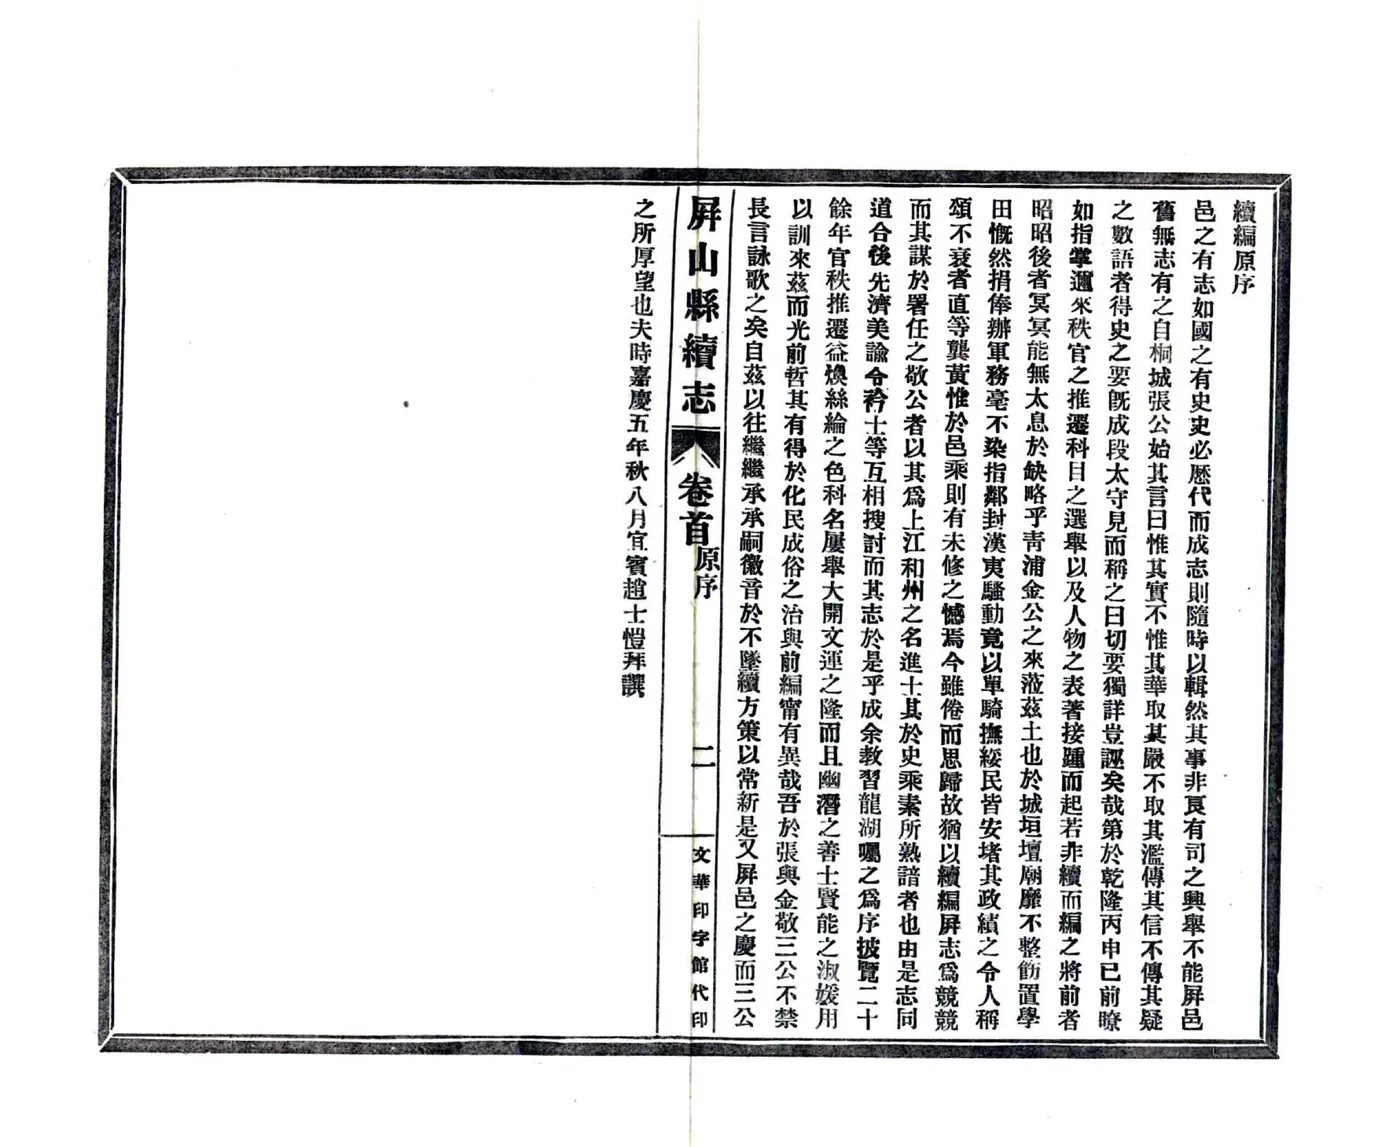 續編原序
邑之有志如國之有史史必歷代而成志則隨時以輯然其事非良有司之興舉不能屏邑
舊無志有之自桐城張公始其言曰惟其實不惟其華取其嚴不取其濫傳其信不傳其疑
之數語者得史之要旣成段太守見而稱之曰切要獨詳豈誣矣哉第於乾隆丙申已前瞭
如指掌邇來秩官之推遷科目之選舉以及人物之表著接踵而起若非續而編之將前者
昭昭後者冥冥能無太息於缺略乎青浦金公之來蒞茲土也於城垣壇廟靡不整飭置學
田慨然捐俸辦軍務毫不染指鄰封漢夷騷動竟以單騎撫綏民皆安堵其政績之令人稱
頌不衰者直等龔黃惟於邑乘則有未修之憾焉今雖倦而思歸故猶以續編屏志爲競競
而其謀於署任之敬公者以其爲上江和州之名進士其於史乘素所熟諳者也由是志同
道合後先濟美諭令衿士等互相搜討而其志於是乎成余教習龍湖囑之爲序披覽二十
餘年官秩推遷益煥絲綸之色科名屢舉大開文運之隆而且幽潛之善士賢能之淑媛用
以訓來茲而光前哲其有得於化民成俗之治與前編甯有異哉吾於張與金敬三公不禁
長言詠歌之矣自茲以往繼繼承承嗣徽音於不墜續方策以常新是又屏邑之慶而三公
屏山縣續志
卷首
原序
二
文華印字館代印
之所厚望也夫時嘉慶五年秋八月宜賓趙士愷拜譔